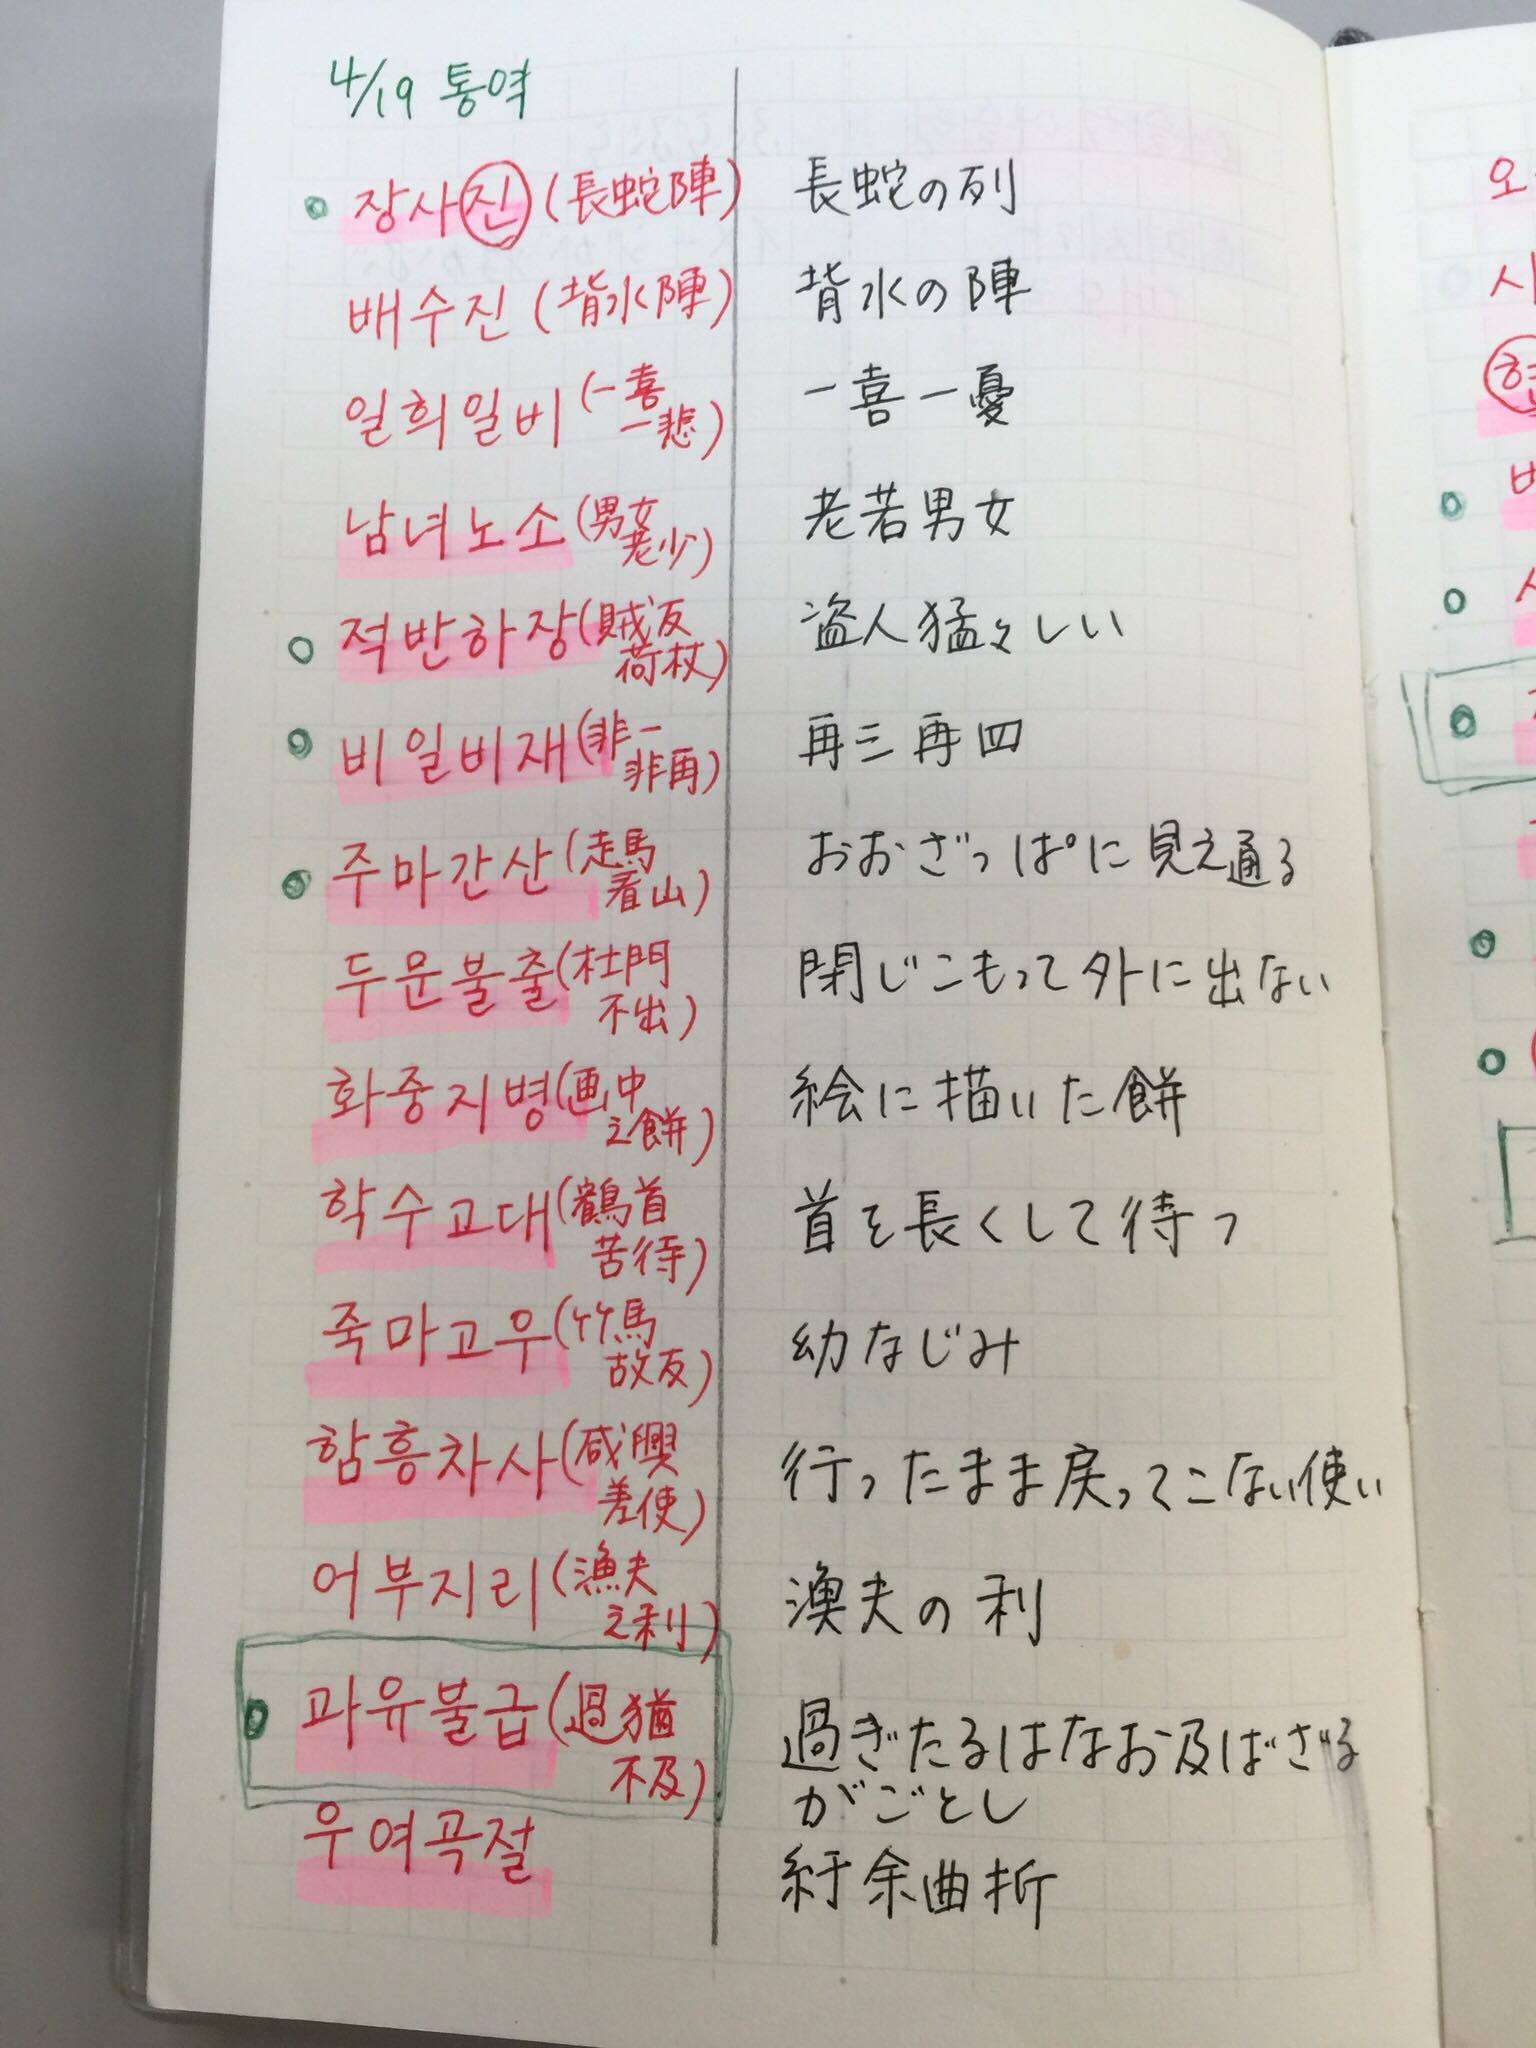 4/19 통역
장사진 (長蛇陣) 長蛇の列
배수진 (背水陣) 背水の陣
일희일비 (一喜 一喜一憂
一悲)
남녀노소 (男女 老若男女
老少)
적반하장 (賊反 盗人猛々しい
荷杖)
비일비재 (非一 再三再四
非再)
주마간산 (走馬 おおざっぱに見え通る
看山)
두문불출 (杜門 閉じこもって外に出ない
不出)
화중지병 (画中 絵に描いた餅
之餅)
학수고대 (鶴首 首を長くして待つ
苦待)
죽마고우 (竹馬 幼なじみ
故友)
함흥차사 (咸興 行ったまま戻ってこない使い
差使)
어부지리 (漁夫 漁夫の利
之利)
과유불급 (過猶 過ぎたるはなお及ばざる
不及) がごとし
우여곡절 紆余曲折
오
시